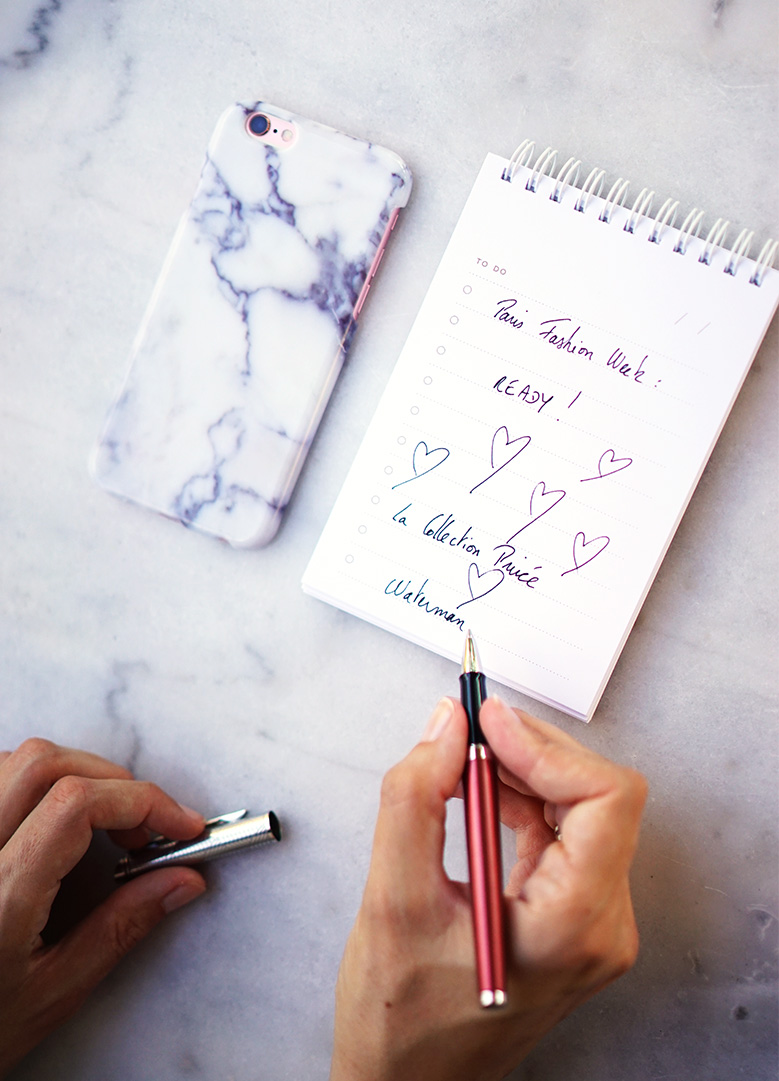 TO DO
Paris Fashion Week :
READY !
La Collection Privée
Waterman